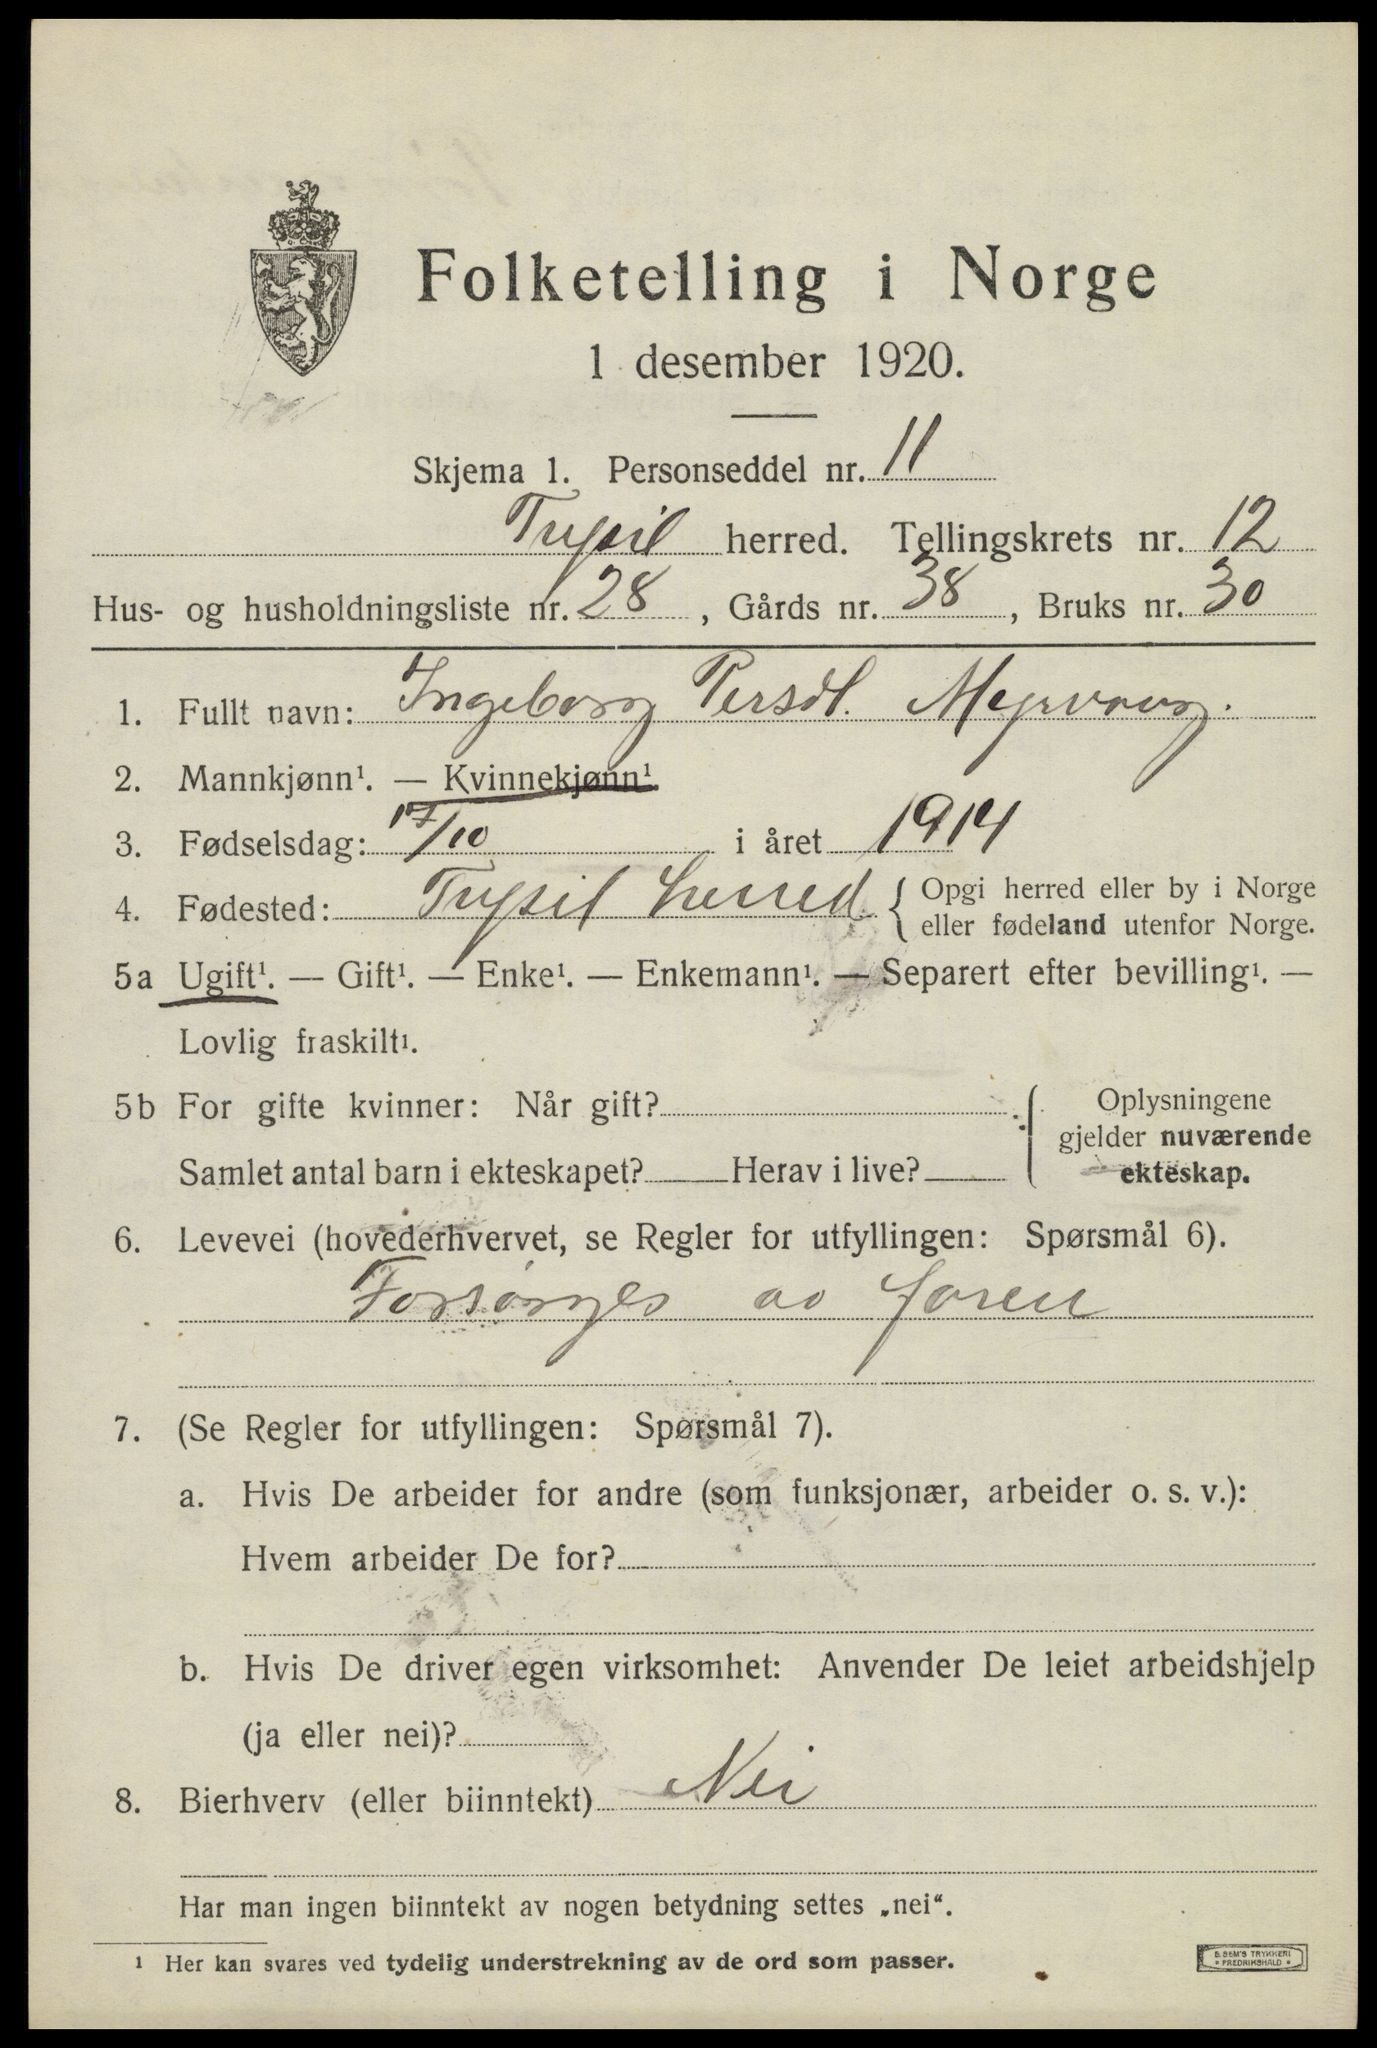 Folketelling i Norge
1 desember 1920.
Skjema 1. Personseddel nr. 11
Trysil herred. Tellingskrets nr. 12
Hus- og husholdningsliste nr. 28, Gårds nr. 38, Bruks nr. 30
1. Fullt navn: Ingeborg Persdt.
2. Mannkjønn¹. — Kvinnekjønn¹
3. Fødselsdag: 17/10 i året 1914
4. Fødested: Trysil herred { Opgi herred eller by i Norge
eller fødeland utenfor Norge.
5a Ugift¹. — Gift¹. — Enke¹. — Enkemann¹. — Separert efter bevilling¹. —
Lovlig fraskilt¹.
5b For gifte kvinner: Når gift?
Samlet antal barn i ekteskapet? Herav i live?
Oplysningene
gjelder nuværende
ekteskap.
6. Levevei (hovederhvervet, se Regler for utfyllingen: Spørsmål 6).
Forsørges av faren
7. (Se Regler for utfyllingen: Spørsmål 7).
a. Hvis De arbeider for andre (som funksjonær, arbeider o. s. v.):
Hvem arbeider De for?
b. Hvis De driver egen virksomhet: Anvender De leiet arbeidshjelp
(ja eller nei)?
8. Bierhverv (eller biinntekt) Nei
Har man ingen biinntekt av nogen betydning settes „nei“.
¹ Her kan svares ved tydelig understrekning av de ord som passer.
E. SEM'S TRYKKERI
• FREDRIKSHALD •